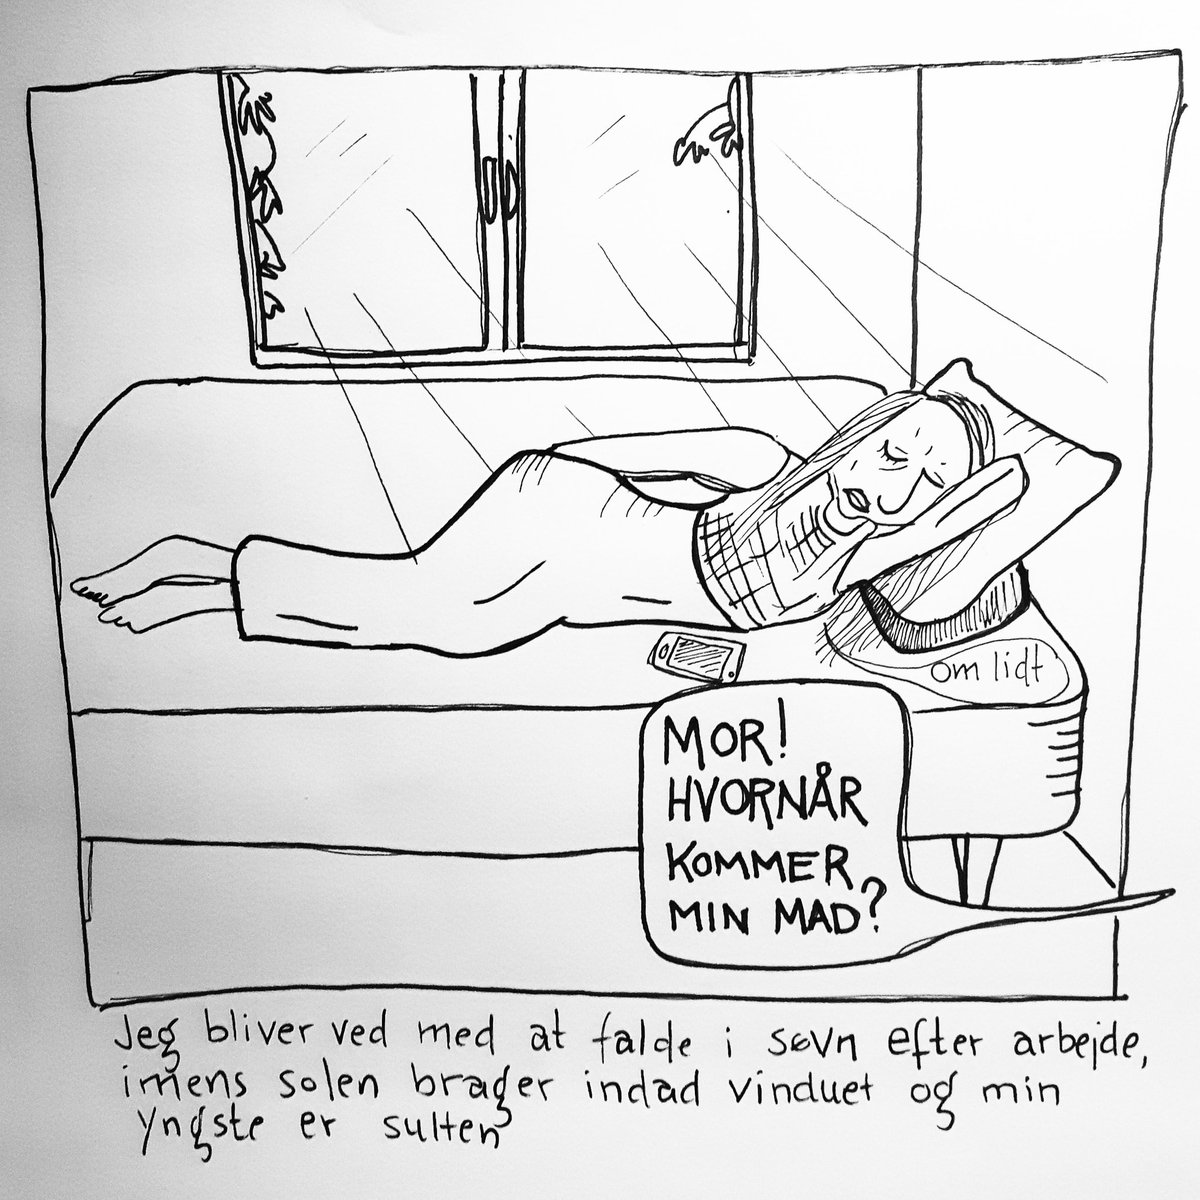 om lidt
MOR!
HVORNÅR
KOMMER
MIN MAD?
Jeg bliver ved med at falde i søvn efter arbejde,
imens solen brager indad vinduet og min
yngste er sulten